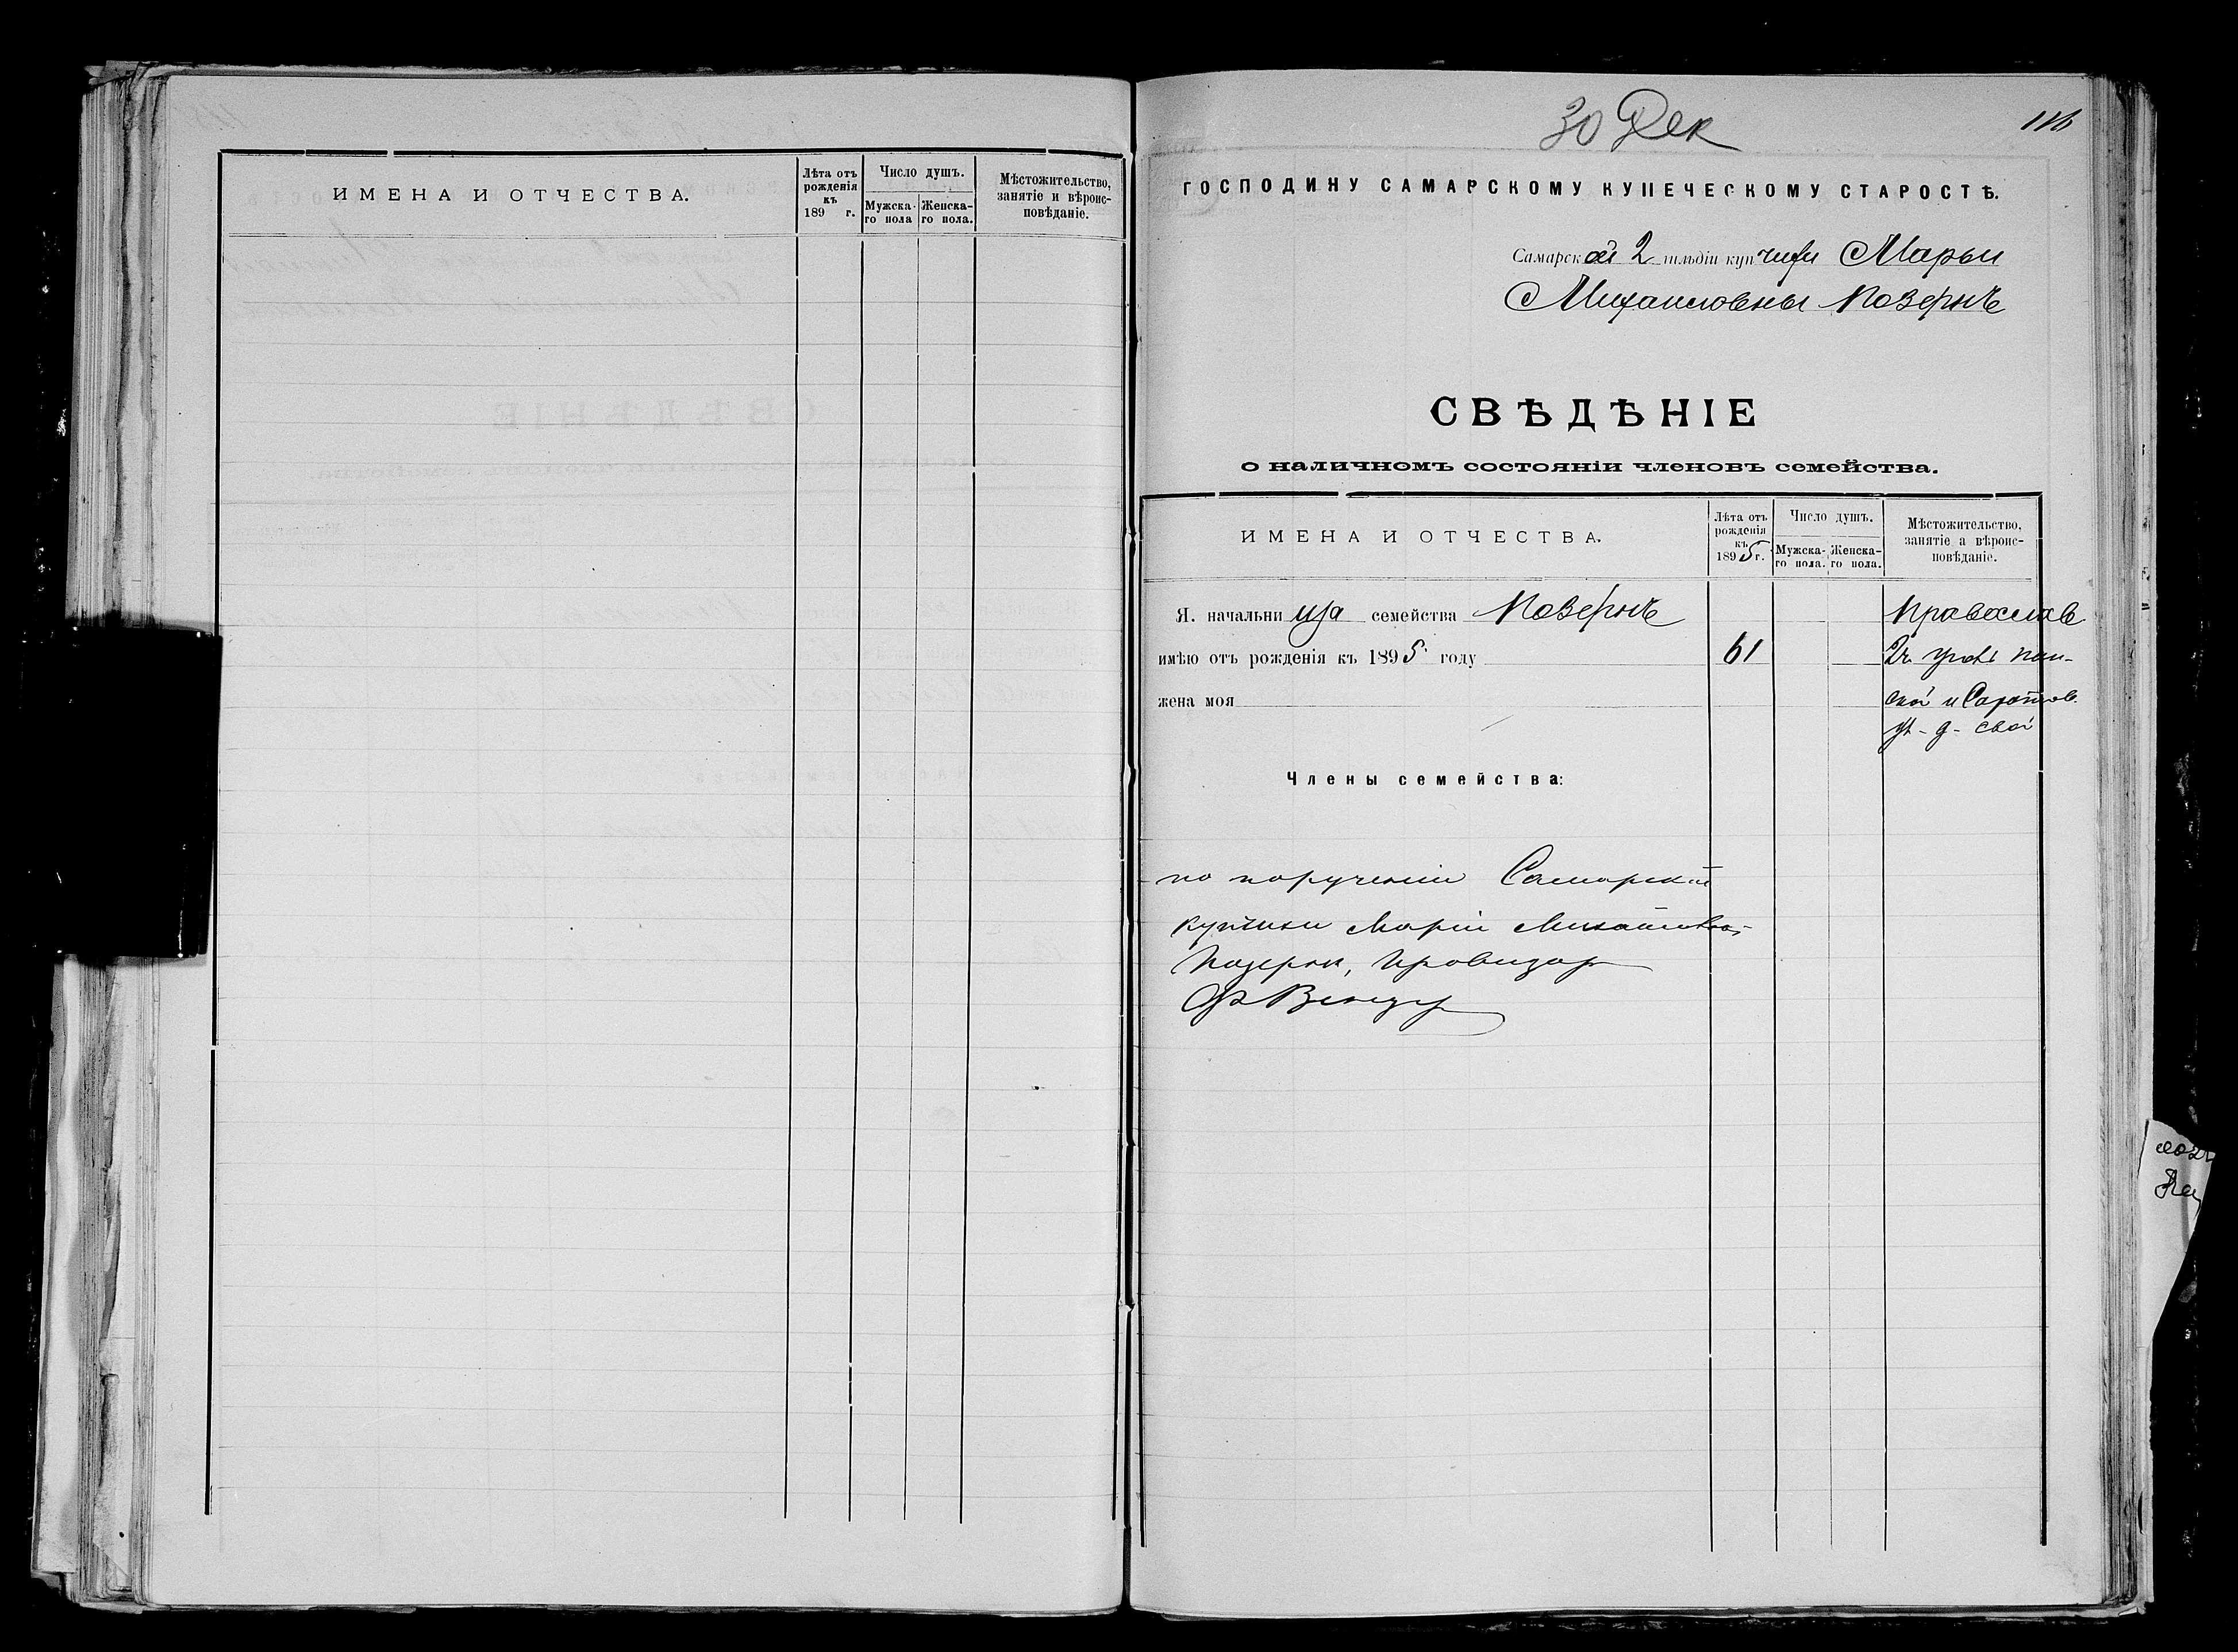 ИМЕНА И ОТЧЕСТВА.
Лѣта отъ рожденія къ 189 г.
Число душъ.
Мужска-го пола
Женска-го пола.
Мѣстожительство, занятіе и вѣроис-повѣданіе.
30 Дек
116
ГОСПОДИНУ САМАРСКОМУ КУПЕЧЕСКОМУ СТАРОСТѢ.
Самарской 2 гильдіи купчихи Марьи
Михаиловны Позернъ
СВѢДѢНІЕ
о наличномъ состояніи членовъ семейства.
ИМЕНА И ОТЧЕСТВА.
Лѣта отъ рожденія къ 1895 г.
Число душъ.
Мужска-го пола.
Женска-го пола.
Мѣстожительство, занятіе а вѣроис-повѣданіе.
Я. начальница семейства Позернъ
Православ
имѣю отъ рожденія къ 1895 году 61
жена моя
и Саратов.
д. свой
Члены семейства:
по порученію Самарской
купчихи Маріи Михайловны
Позерн, Провизор